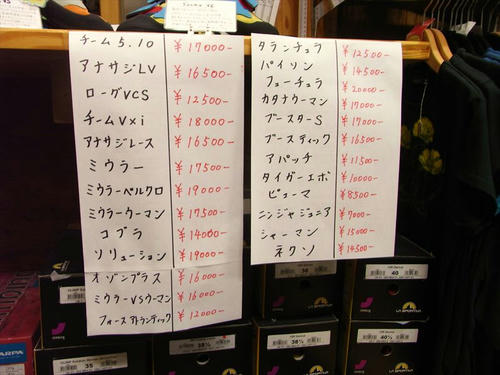 チーム5.10 ¥17000-
アナサジLV ¥16500-
ローグVCS ¥12500-
チームVxi ¥18000-
アナサジレース ¥16500-
ミウラー ¥17500-
ミウラーベルクロ ¥19000-
ミウラーウーマン ¥17500-
コブラ ¥14000-
ソリューション ¥19000-
オゾンプラス ¥16000-
ミウラーVSウーマン ¥16000-
フォースアトランティック ¥12000-
タランチュラ ¥12500-
パイソン ¥14500-
フューチュラ ¥20000-
カタナウーマン ¥17000-
ブースターS ¥17000-
ブースティック ¥16500-
アパッチ ¥11500-
タイガーエボ ¥10000-
ピューマ ¥8500-
ニンジャジュニア ¥7000-
シャーマン ¥15000-
ネクソ ¥14500-
35
38½
38
38½
40
40½
LA SPORTIVA
LA SPORTIVA